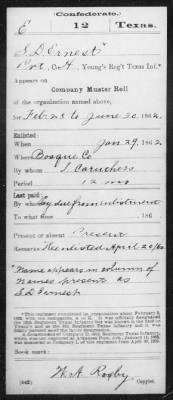 (Confederate.)
E 12 Texas.
S D Ernest*
Pvt, Co. A, Young's Reg't Texas Inf.*
Appears on
Company Muster Roll
of the organization named above,
for Feb 28 to June 30, 1862.
Enlisted:
When Jan 29, 1862
Where Bosque Co
By whom J. Caruthers
Period 12 mo
Last paid:
By whom
To what time , 186
Present or absent Present
Remarks: Reenlisted April 20/62
*Name appears in column of
names present as
S D Ernest
Book mark:
W. A. Rogby
(642) Copyist.